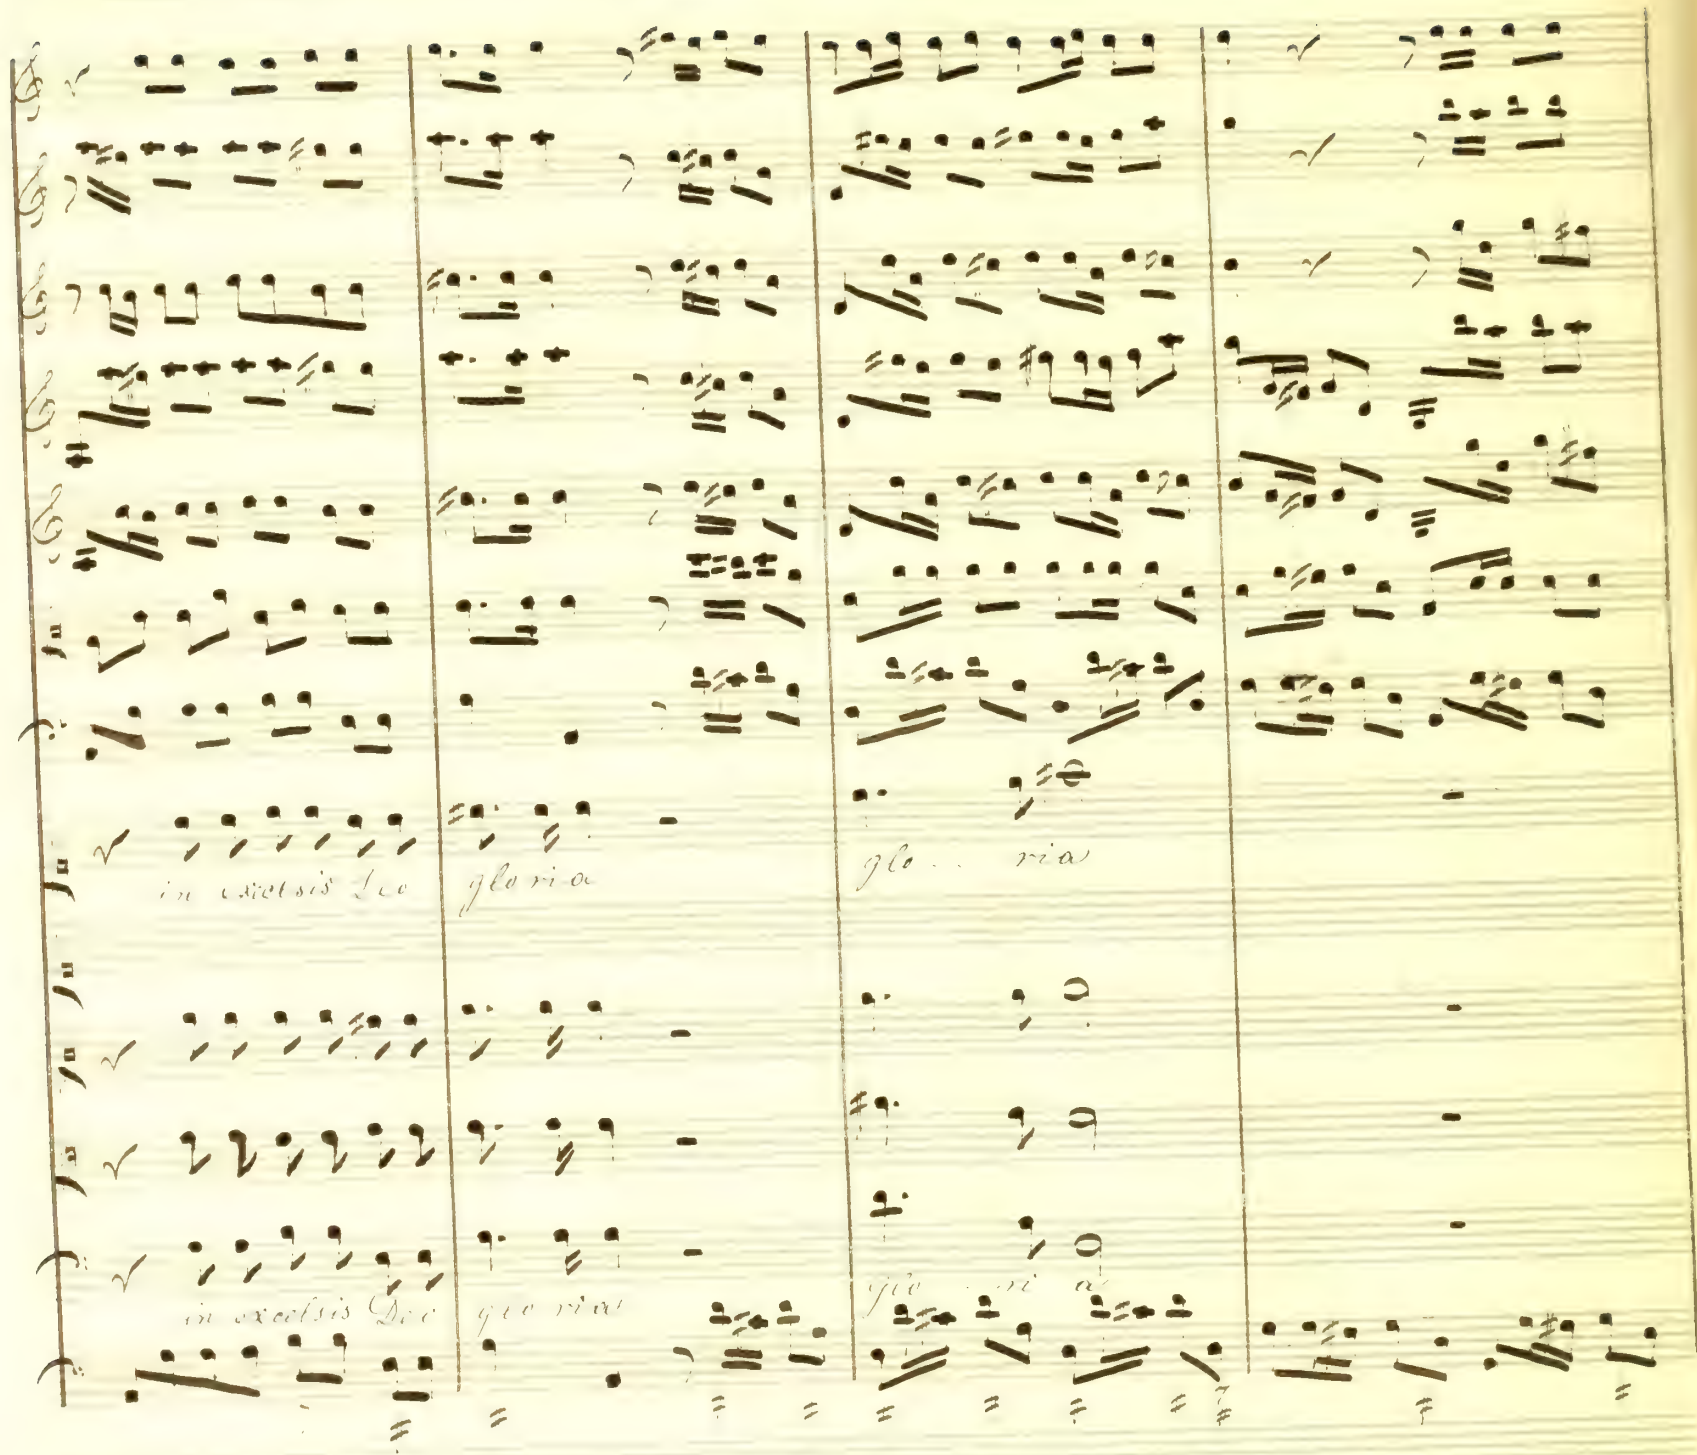 in excelsis Deo gloria glo - - ria
in excelsis Deo gloria glo - - ri a